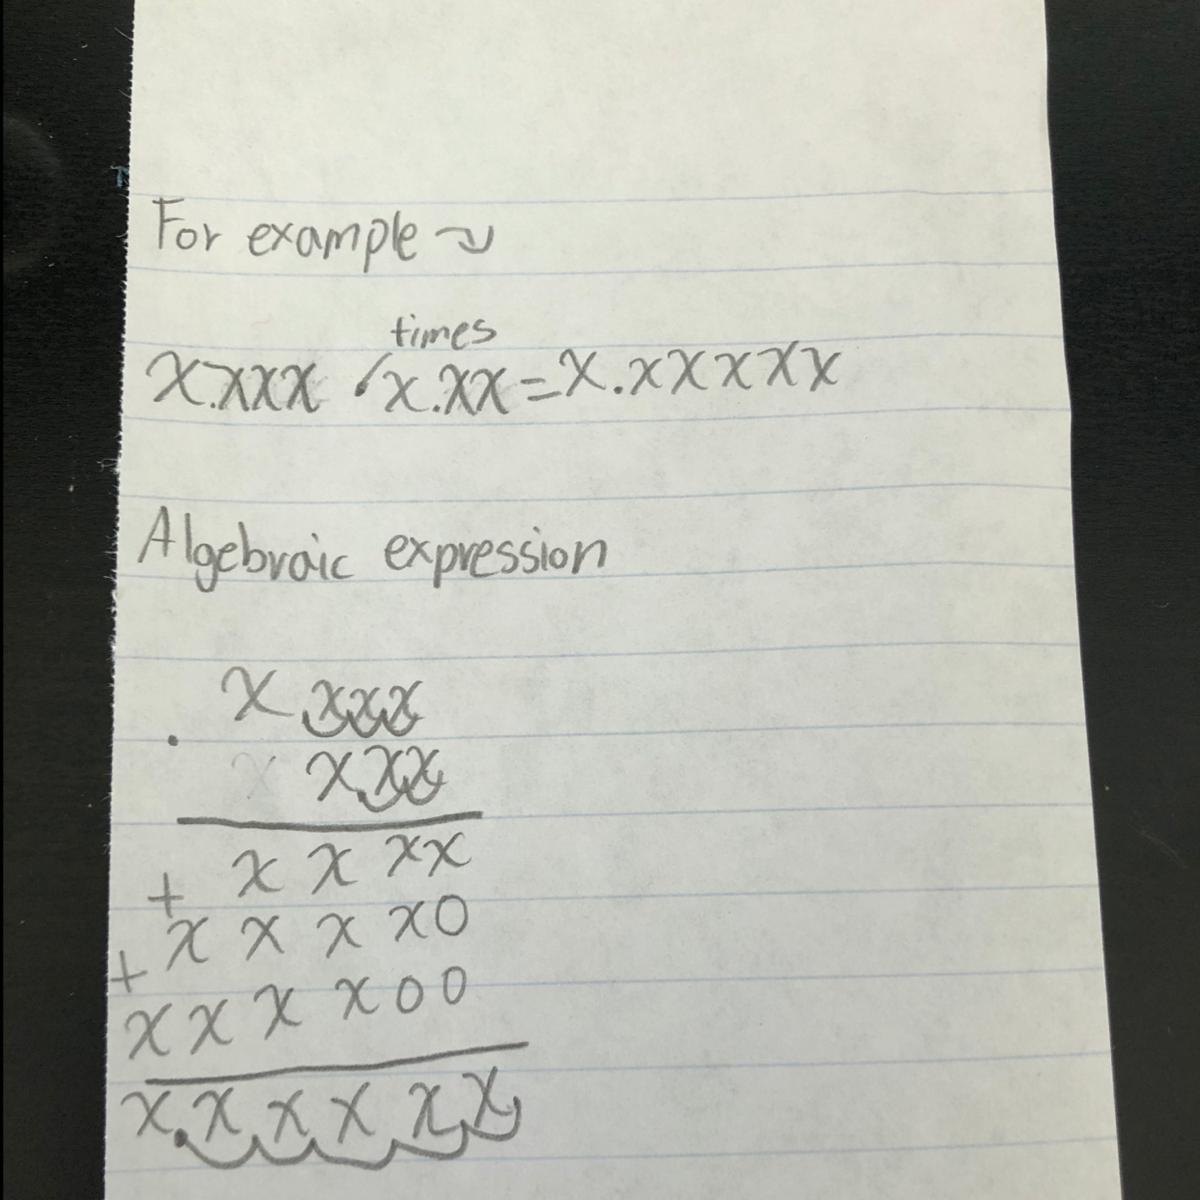 For example ↴
times
x.xxx · x.xx = x.xxxxx
Algebraic expression
x.xxx
· x.xx
x x x x
+ x x x x 0
+ x x x x 0 0
x.x x x x x